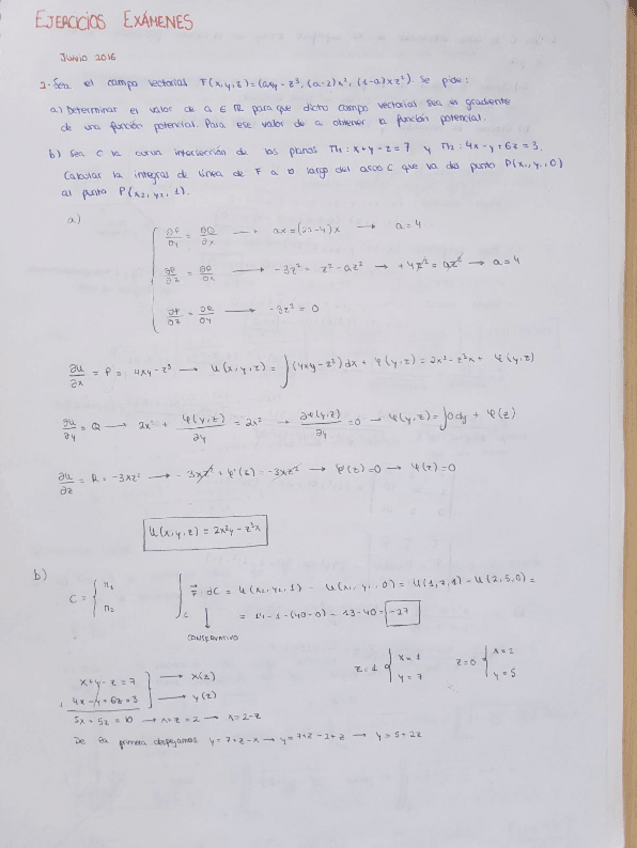 EJERCICIOS EXÁMENES
JUNIO 2016
1.- Sea el campo vectorial F(x,y,z)=(axy-z³, (a-2)x², (1-a)xz²). Se pide:
a) Determinar el valor de a ∈ ℝ para que dicho campo vectorial sea el gradiente
de una función potencial. Para ese valor de a obtener la función potencial.
b) Sea C la curva intersección de los planos Π₁: x+y-z=7 y Π₂: 4x-y+6z=3.
Calcular la integral de línea de F a lo largo del arco C que va del punto P(x₁,y₁,0)
al punto P(x₂,y₂,1).
a)
∂P/∂y = ∂Q/∂x → ax=(2a-4)x → a=4
-3z² = z²-az² → +4z² = az² → a=4
-3z² = 0
∂u/∂x = P = 4xy-z³ → u(x,y,z) = ∫(4xy-z³)dx + φ(y,z) = 2x²-z³x + φ(y,z)
∂u/∂y = Q → 2x² + φ(y,z)/∂y = 2x² → ∂φ(y,z)/∂y = 0 → φ(y,z) = ∫0dy + φ(z)
∂u/∂z = R = -3xz² → -3xz² + φ'(z) = -3xz² → φ'(z)=0 → φ(z)=0
u(x,y,z) = 2x²y - z³x
b)
C = { Π₁ Π₂ ∫c F⃗ · dC = u(x₂,y₂,1) - u(x₁,y₁,0) = u(1,7,1) - u(2,5,0) =
= 14-1-(40-0) = 13-40 = -27
CONSERVATIVO
z=1 { x=1 y=7 z=0 { x=2 y=5
x+y-z=7 → x(z)
4x-y+6z=3 → y(z)
5x+5z=10 → x+z=2 → x=2-z
De la primera despejamos y=7+z-x → y=7+z-2+z → y=5+2z